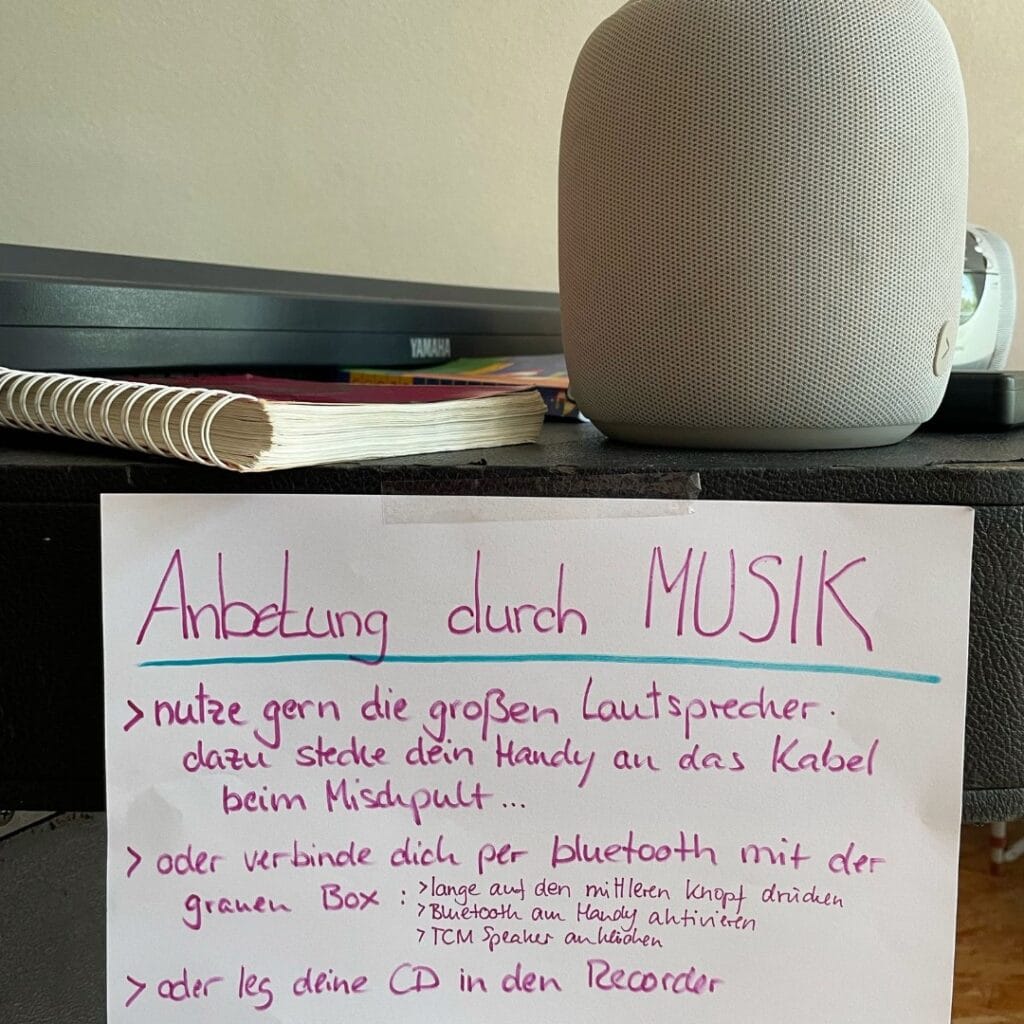 YAMAHA
Anbetung durch MUSIK
> nutze gern die großen Lautsprecher.
dazu stecke dein Handy an das Kabel
beim Mischpult...
> oder verbinde dich per bluetooth mit der
grauen Box : > lange auf den mittleren Knopf drücken
> Bluetooth am Handy aktivieren
> TCM Speaker anklicken
> oder leg deine CD in den Recorder